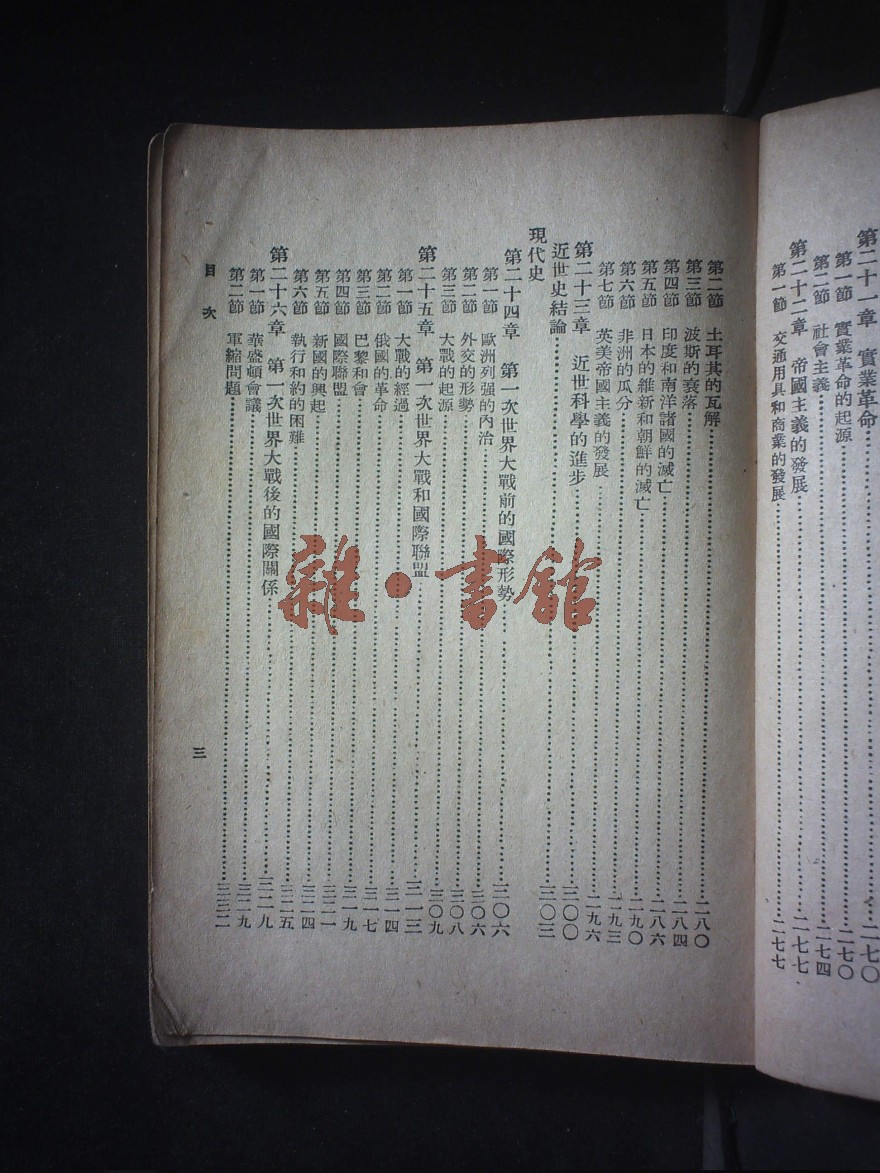 第二十一章 實業革命……二七〇
第一節 實業革命的起源……二七〇
第二節 社會主義……二七四
第二十二章 帝國主義的發展……二七七
第一節 交通用具和商業的發展……二七七
第二節 土耳其的瓦解……二八〇
第三節 波斯的衰落……二八四
第四節 印度和南洋諸國的滅亡……二八六
第五節 日本的維新和朝鮮的滅亡……二九〇
第六節 非洲的瓜分……二九三
第七節 英美帝國主義的發展……二九六
第二十三章 近世科學的進步……三〇〇
近世史結論……三〇三
現代史
第二十四章 第一次世界大戰前的國際形勢……三〇六
第一節 歐洲列强的內治……三〇六
第二節 外交的形勢……三〇八
第三節 大戰的起源……三〇九
第二十五章 第一次世界大戰和國際聯盟……三一三
第一節 大戰的經過……三一四
第二節 俄國的革命……三一七
第三節 巴黎和會……三一九
第四節 國際聯盟……三二一
第五節 新國的興起……三二四
第六節 執行和約的困難……三二五
第二十六章 第一次世界大戰後的國際關係……三二九
第一節 華盛頓會議……三二九
第二節 軍縮問題……三三二
目次
三
雜·書館